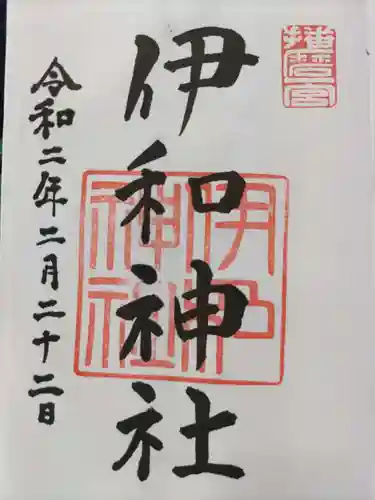 播磨宮
伊和神社
伊和
神社
令和二年二月二十二日